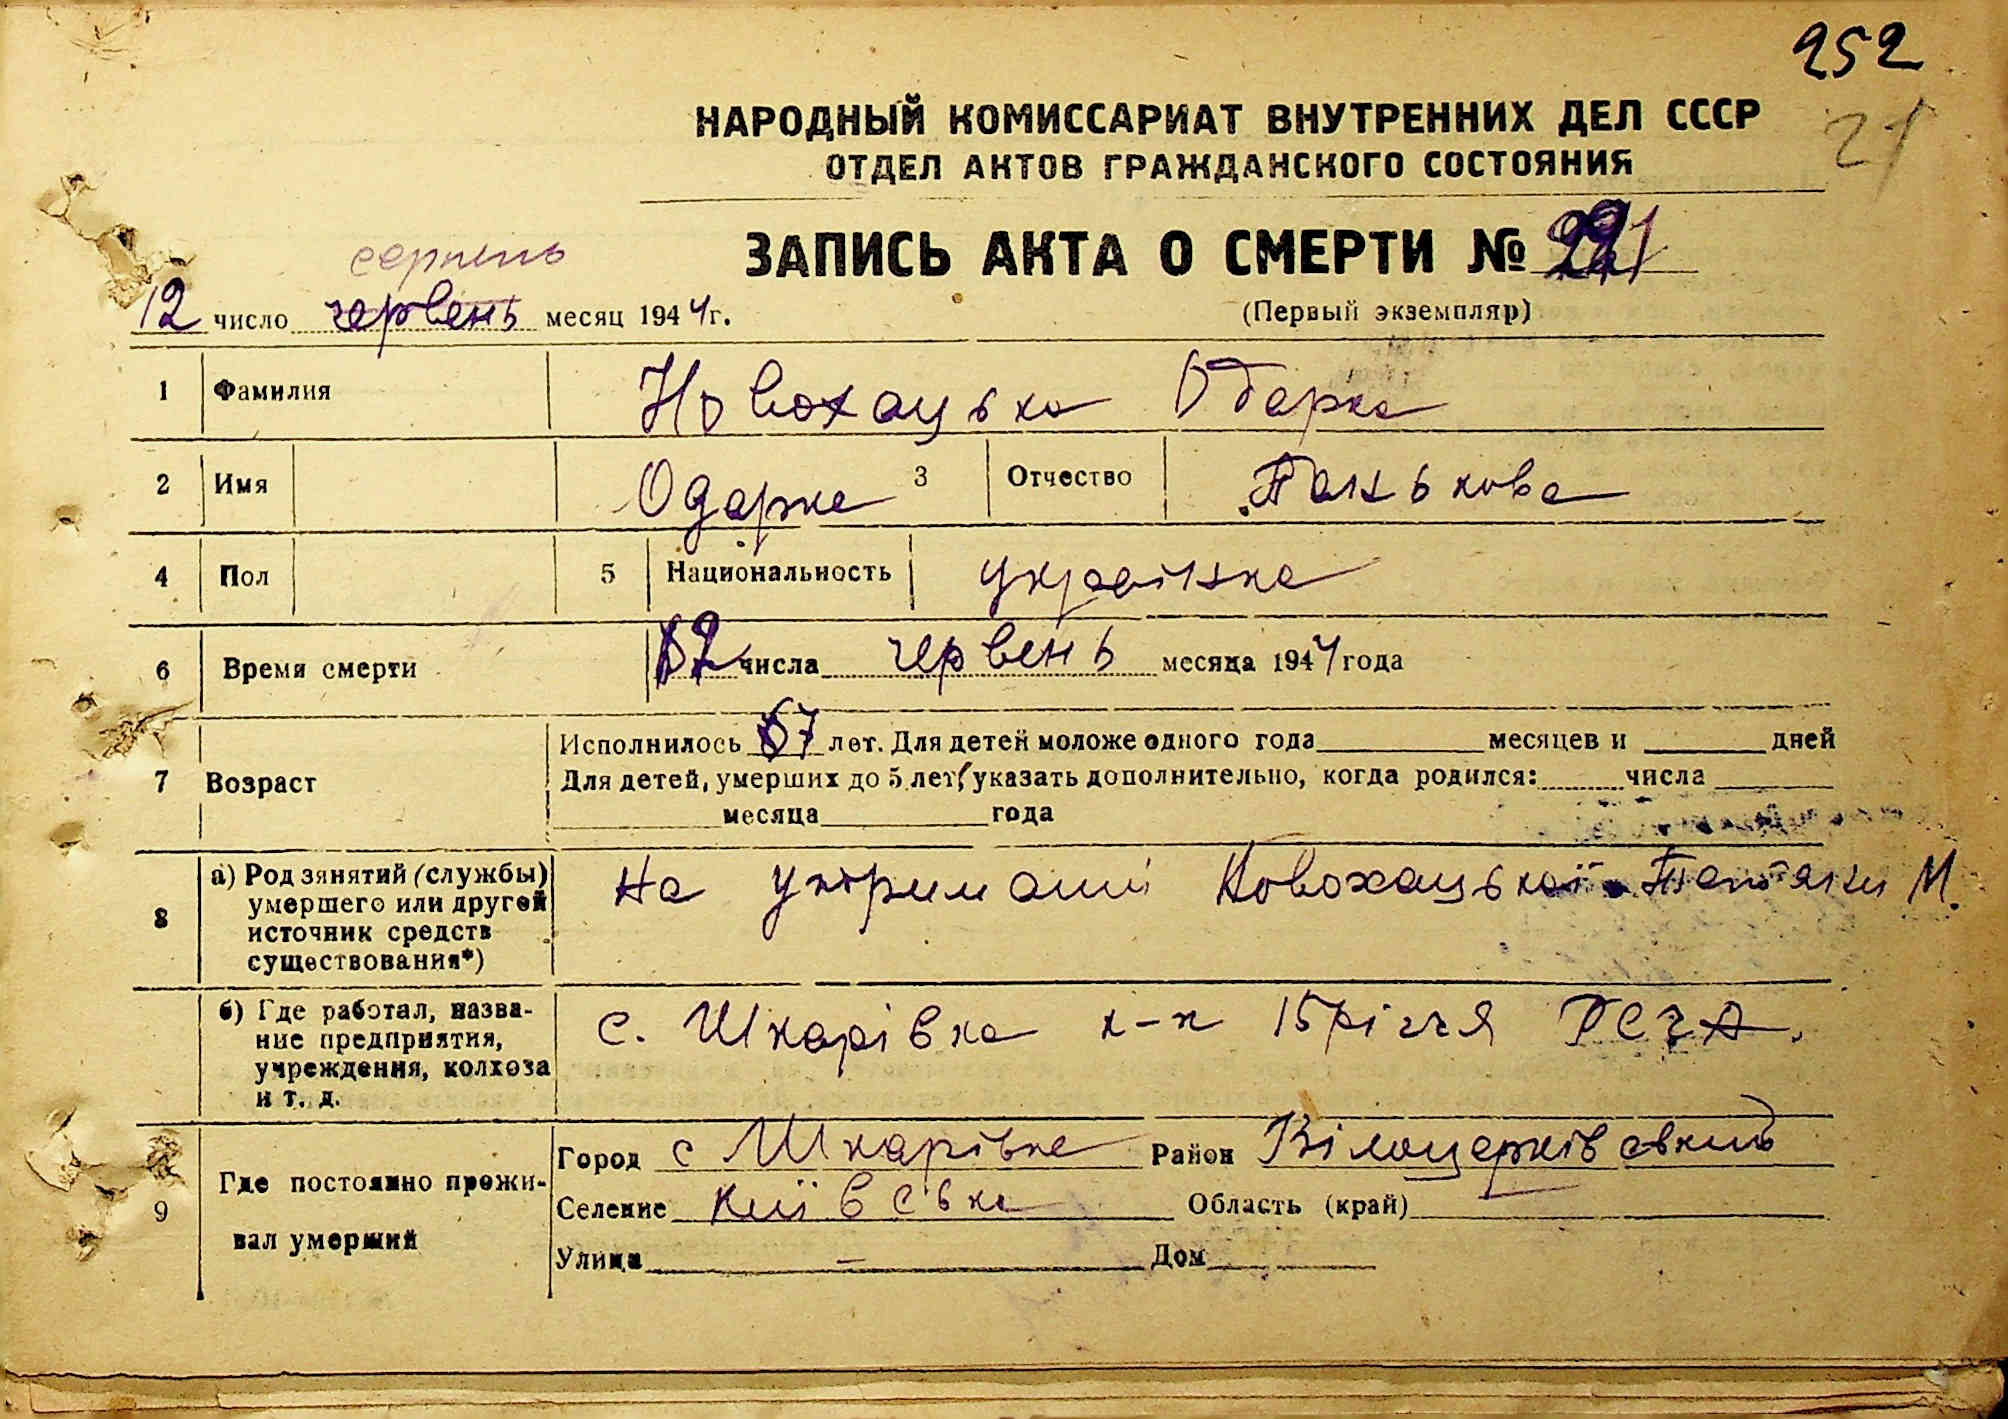 252
21
НАРОДНЫЙ КОМИССАРИАТ ВНУТРЕННИХ ДЕЛ СССР
ОТДЕЛ АКТОВ ГРАЖДАНСКОГО СОСТОЯНИЯ
ЗАПИСЬ АКТА О СМЕРТИ № 221
(Первый экземпляр)
серпень
12 число червень месяц 1944 г.
1 Фамилия Новохацька Одарка
2 Имя Одарка 3 Отчество Панькова
4 Пол 5 Национальность українка
6 Время смерти 12 числа червень месяца 1944 года
7 Возраст
Исполнилось 67 лет. Для детей моложе одного года месяцев и дней
Для детей, умерших до 5 лет, указать дополнительно, когда родился: числа
месяца года
8 а) Род занятий (службы) умершего или другой источник средств существования*)
На утриманні Новохацької Тетяни М.
б) Где работал, название предприятия, учреждения, колхоза и т. д.
с. Шкарівка к-п 15 річчя РСЧА.
9 Где постоянно проживал умерший
Город с Шкарівка Район Білоцерківський
Селение Київська Область (край)
Улица — Дом